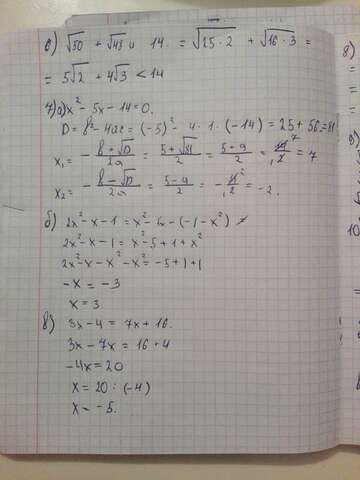 е) √50 + √48 и 14. = √25·2 + √16·3 =
= 5√2 + 4√3 < 14
7) а) x² - 5x - 14 = 0.
D = b² - 4ac = (-5)² - 4·1·(-14) = 25 + 56 = 81
x₁ = -b + √D / 2a = 5 + √81 / 2 = 5 + 9 / 2 = 14 / 2 = 7
x₂ = -b - √D / 2a = 5 - 9 / 2 = -4 / 2 = -2.
б) 2x² - x - 1 = x² - 5 - (-1 - x²)
2x² - x - 1 = x² - 5 + 1 + x²
2x² - x - x² - x² = -5 + 1 + 1
-x = -3
x = 3.
в) 3x - 4 = 7x + 16.
3x - 7x = 16 + 4
-4x = 20
x = 20 : (-4)
x = -5.
8)